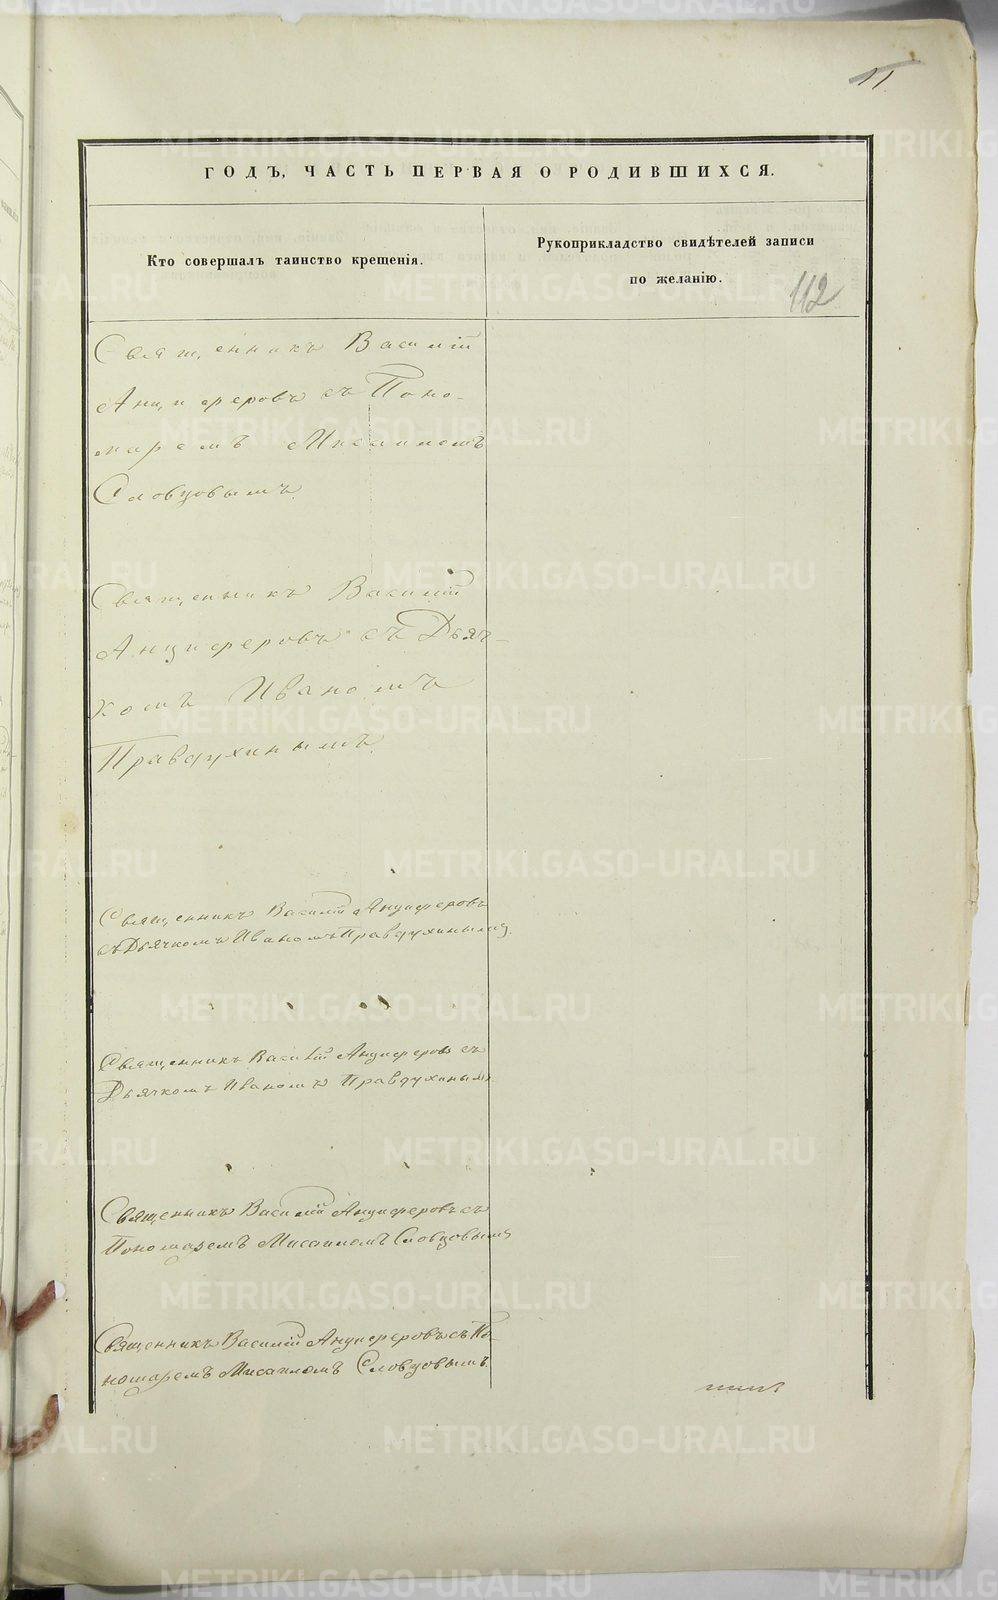 11
ГОДЪ, ЧАСТЬ ПЕРВАЯ О РОДИВШИХСЯ.
Кто совершалъ таинство крещенія.
Рукоприкладство свидѣтелей записи
по желанію.
112
Священникъ Василій
Анциферовъ съ Поно-
маремъ Мисаиломъ
Словцовымъ.
Священникъ Василій
Анциферовъ съ Дьяч-
комъ Иваномъ
Правдухинымъ.
Священникъ Василій Анциферовъ
съ Дьячкомъ Иваномъ Правдухинымъ.
Священникъ Василій Анциферовъ съ
Дьячкомъ Иваномъ Правдухинымъ
Священникъ Василій Анциферовъ съ
Пономаремъ Мисаиломъ Словцовымъ
Священникъ Василій Анциферовъ съ По-
номаремъ Мисаиломъ Словцовымъ.
METRIKI.GASO-URAL.RU